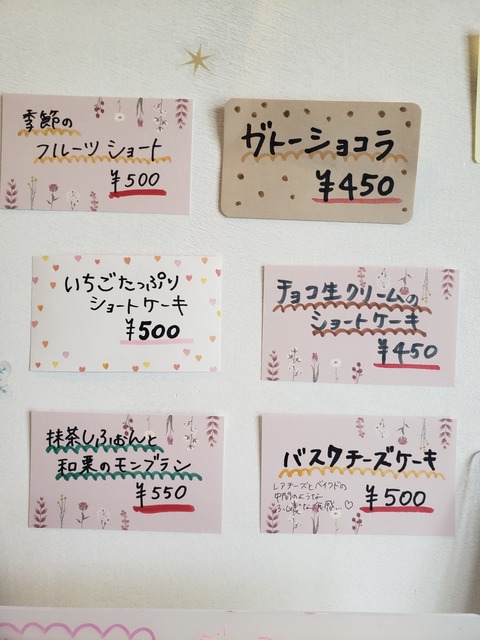 季節の
フルーツ ショート
¥500
ガトーショコラ
¥450
いちごたっぷり
ショートケーキ
¥500
チョコ生クリームの
ショートケーキ
¥450
抹茶しふぉんと
和栗のモンブラン
¥550
バスクチーズケーキ
レアチーズとベイクドの
中間のような
ふしぎな食感…♡
¥500